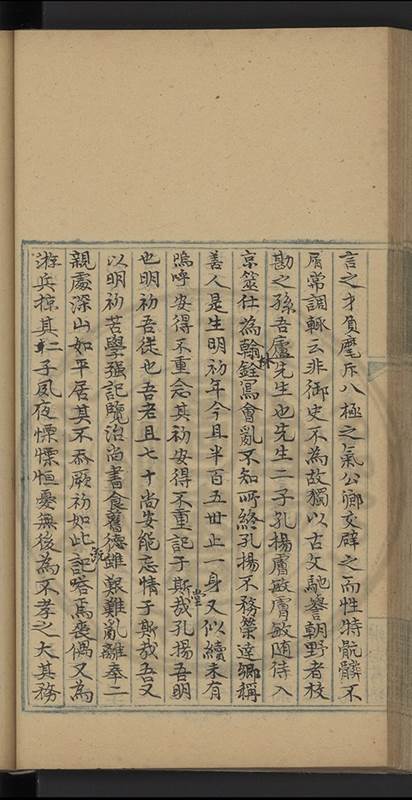 言之才負麾斥八極之氣公卿交辟之而性特骯髒不
屑常調輒云非御史不為故獨以古文馳譽朝野者枝
勘之孫吾廬先生也先生二子孔揚膚敏膚敏隨侍入
京筮仕為翰林銓寫會亂不知所終孔揚不務榮達鄉稱
善人是生明初年今且半百五世止一身又似續未有
嗚呼安得不重念其初安得不重記于斯堂哉孔揚吾明
也明初吾徒也吾老且七十尚安能忘情于斯哉吾又
以明初苦學强記覽治尚書食舊德雖艱難亂離奉二
親處深山如平居其不忝厥初如此記既嗒焉喪偶又為
游兵掠其二子夙夜慄慄恒憂無後為不孝之大其務